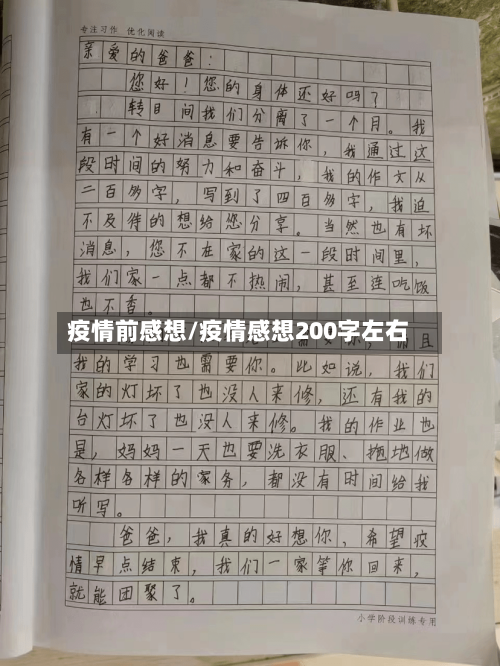 专注习作 优化阅读
亲爱的爸爸：
您好！您的身体还好吗？
转目间我们分离了一个月。我
有一个好消息要告诉你，我通过这
段时间的努力和奋斗，我的作文从
二百多字，写到了四百多字，我迫
不及待的想给您分享。当然也有坏
消息，您不在家的这一段时间里，
我们家一点都不热闹，甚至连吃饭
也不香。
疫情前感想/疫情感想200字左右
且
我的学习也需要你。比如说，我们
家的灯坏了也没人来修，还有我的
台灯坏了也没人来修。我的作业也
是，妈妈一天也要洗衣服、拖地做
各样各样的家务，都没有时间给我
听写。
爸爸，我真的好想你，希望疫
情早点结束，我们一家等你回来，
就能团聚了。
小学阶段训练专用